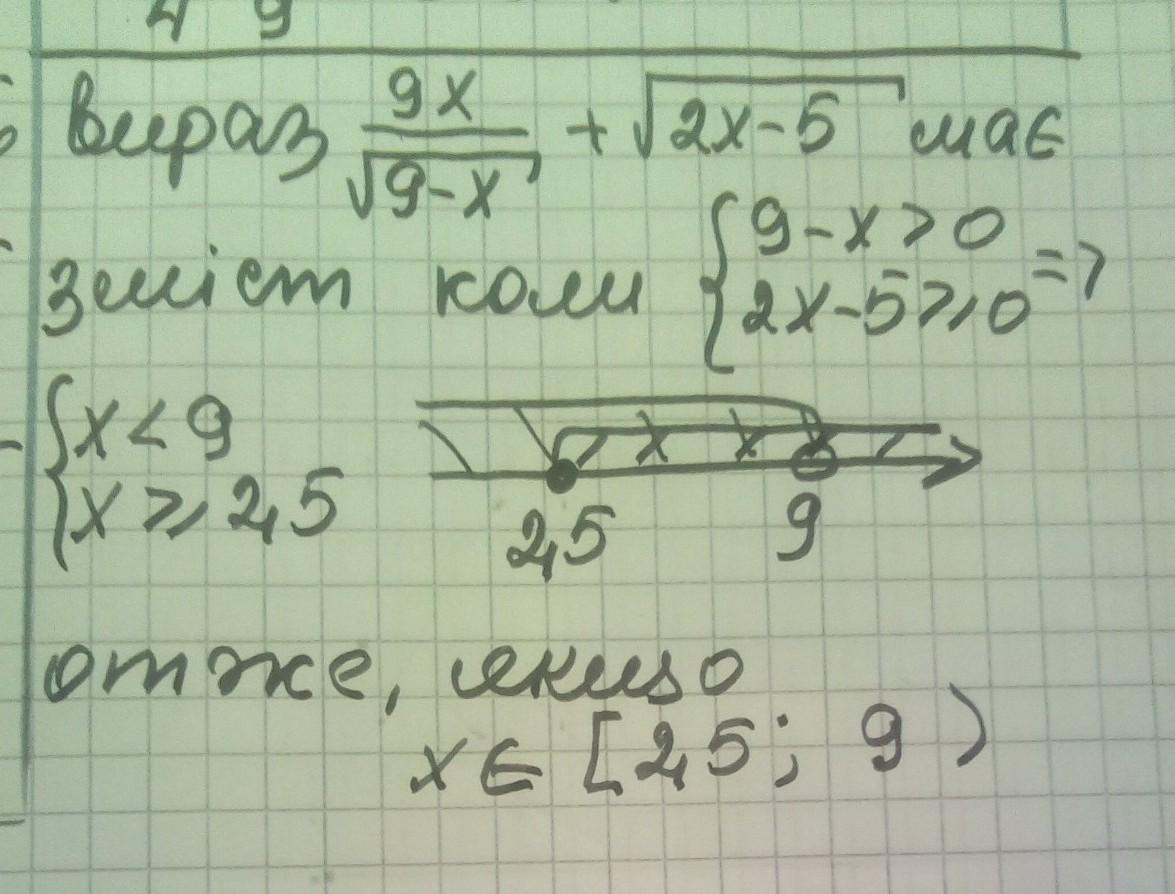 4 9
вираз 9x/√(9-x) + √(2x-5) має
зміст коли {9-x>0 2x-5⩾0 =>
{x<9 x⩾2,5
2,5 9
отже, якщо
x∈[2,5; 9)